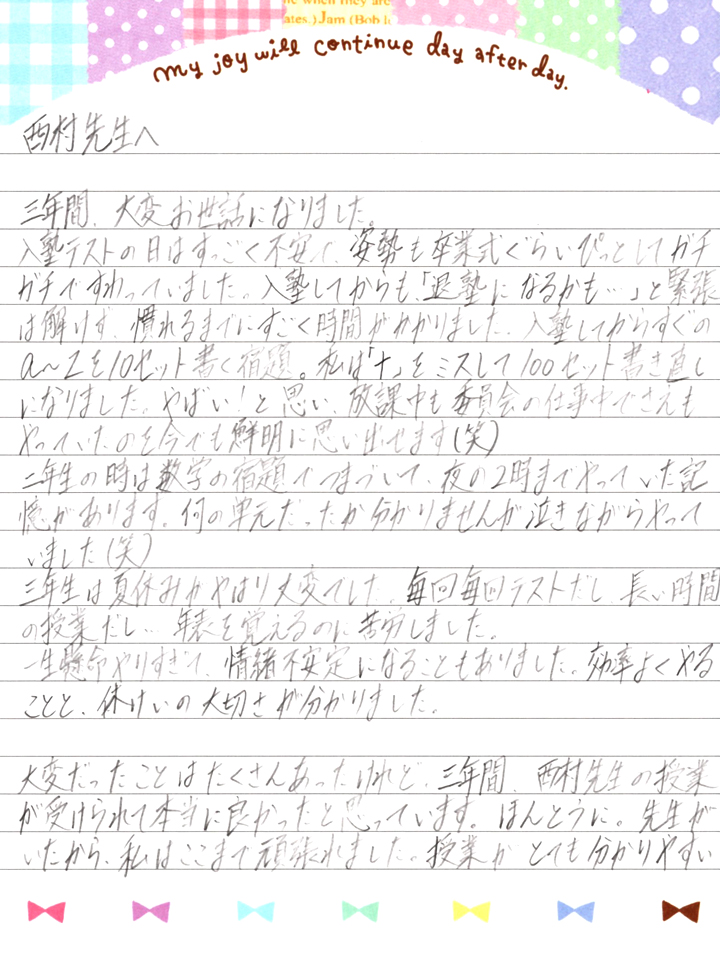 me when they are
ates.) Jam (Bob
my joy will continue day after day.
西村先生へ
三年間、大変お世話になりました。
入塾テストの日はすっごく不安で、姿勢も卒業式ぐらいぴっとしてガチ
ガチですわっていました。入塾してからも、「退塾になるかも…」と緊張
は解けず、慣れるまでにすごく時間がかかりました。入塾してからすぐの
a〜zを10セット書く宿題。私は「t」をミスして100セット書き直し
になりました。やばい!と思い、放課中も委員会の仕事中でさえも
やっていたのを今でも鮮明に思い出せます(笑)
二年生の時は数学の宿題でつまづいて、夜の2時までやっていた記
憶があります。何の単元だったか分かりませんが泣きながらやって
いました(笑)
三年生は夏休みがやはり大変でした。毎回毎回テストだし、長い時間
の授業だし…年表を覚えるのに苦労しました。
一生懸命やりすぎて、情緒不安定になることもありました。効率よくやる
ことと、休けいの大切さが分かりました。
大変だったことはたくさんあったけれど、三年間、西村先生の授業
が受けられて本当に良かったと思っています。ほんとうに。先生が
いたから、私はここまで頑張れました。授業がとても分かりやすい